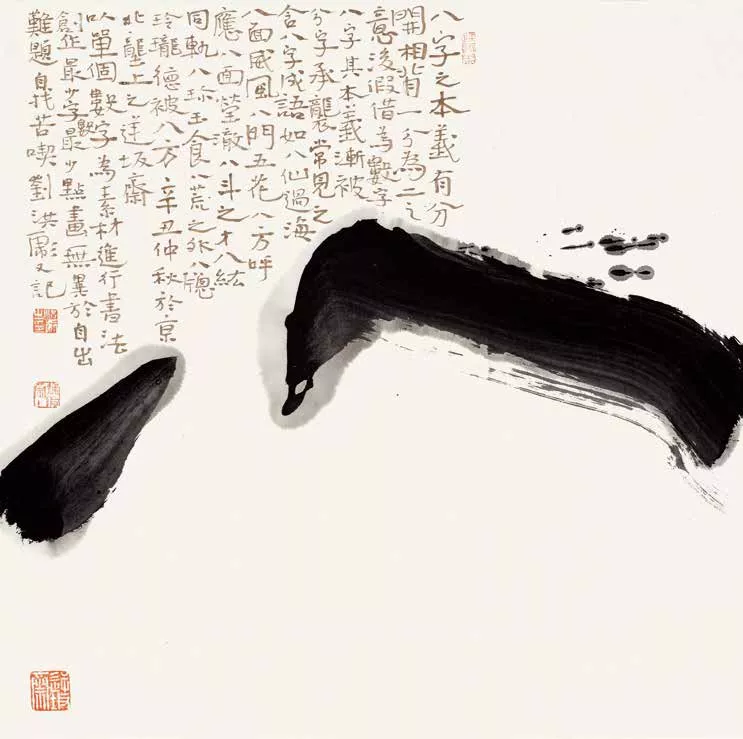 八
八字之本義有分
開相背一分為二之
意後假借為數字
八字其本義漸被
分字承襲常見之
含八字成語如八仙過海
八面威風八門五花八方呼
應八面瑩澈八斗之才八紘
同軌八珍玉食八荒之外八牕
玲瓏德被八方辛丑仲秋於京
北壟上之逆坂齋
以單個數字為素材進行書法
創作最少字數最少點畫無異於自出
難題自找苦喫劉洪彪又記